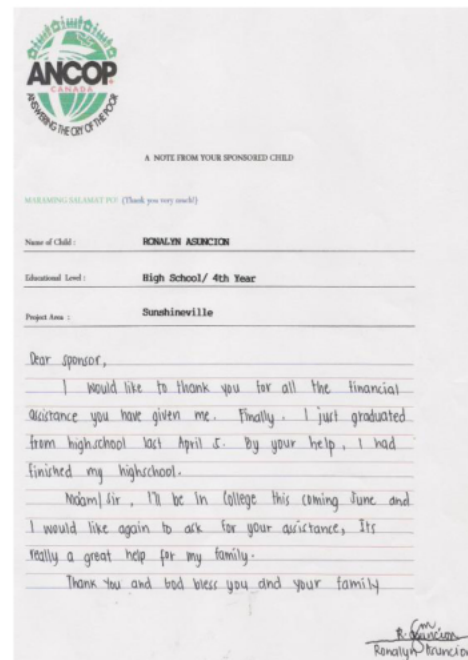 ANCOP
CANADA
ANSWERING THE CRY OF THE POOR
A NOTE FROM YOUR SPONSORED CHILD
MARAMING SALAMAT PO! (Thank you very much!)
Name of Child : RONALYN ASUNCION
Educational Level : High School/ 4th Year
Project Area : Sunshineville
Dear sponsor,
I would like to thank you for all the financial
assistance you have given me. Finally. I just graduated
from highschool last April 5. By your help, I had
finished my highschool.
Madam/Sir, I'll be in College this coming June and
I would like again to ask for your assistance, Its
really a great help for my family.
Thank You and God bless you and your family
Ronalyn Asuncion